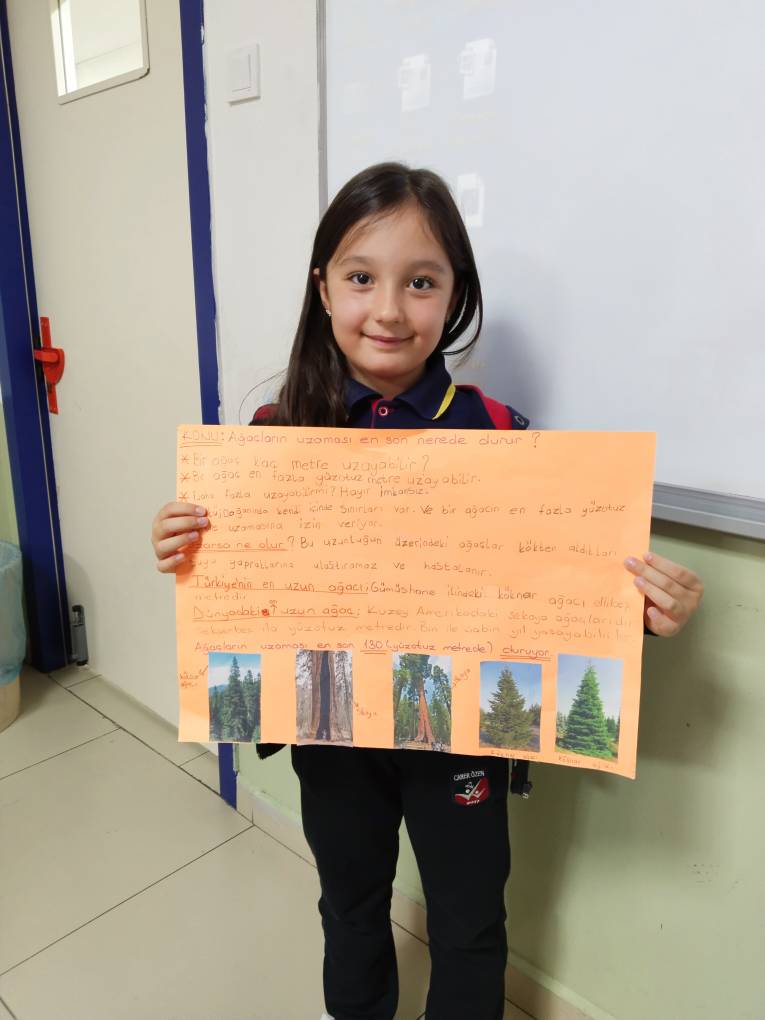 KONU: Ağaçların uzaması en son nerede durur?
* Bir ağaç kaç metre uzayabilir?
* Bir ağaç en fazla yüzotuz metre uzayabilir.
* Daha fazla uzayabilirmi? Hayır imkansız.
doğanında kendi içinde sınırları var. Ve bir ağacın en fazla yüzotuz
uzamasına izin veriyor.
ne olur? Bu uzunluğun üzerindeki ağaçlar kökten aldıkları
suyu yapraklarına ulaştıramaz ve hastalanır.
Türkiyenin en uzun ağacı; Gümüşhane ilindeki köknar ağacı ellibeş
metredir
Dünyadaki en uzun ağaç; Kuzey Amerikadaki sekoya ağaçlarıdır
ila yüzotuz metredir. Bin ila yıl yaşayabilirler
Ağaçların uzaması en son 130 (yüzotuz metrede) duruyor.
sekoya
sekoya
Köknar
CABER ÖZEN